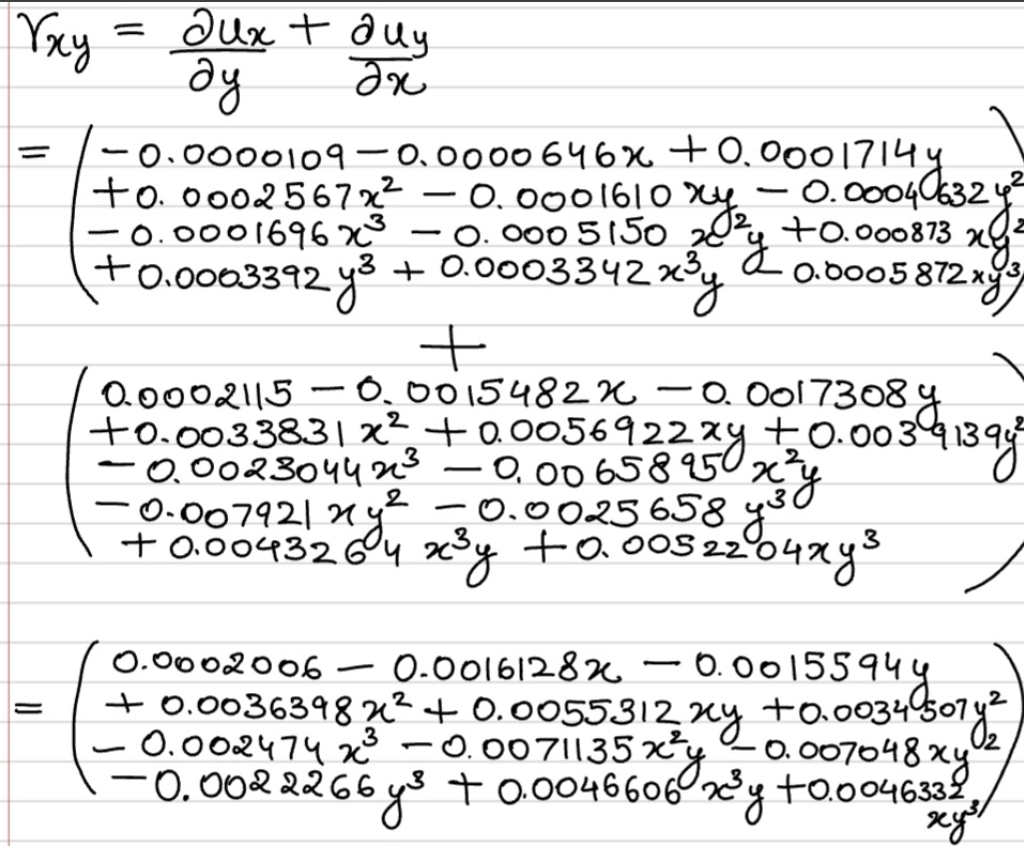 γxy = ∂ux/∂y + ∂uy/∂x
= (-0.0000109 - 0.0000646x + 0.0001714y
+0.0002567x² - 0.0001610xy - 0.0004632y²
-0.0001696x³ - 0.0005150x²y + 0.000873xy²
+0.0003392y³ + 0.0003342x³y - 0.0005872xy³)
+
(0.0002115 - 0.0015482x - 0.0017308y
+0.0033831x² + 0.0056922xy + 0.0039139y²
-0.0023044x³ - 0.0065895x²y
-0.007921xy² - 0.0025658y³
+0.0043264x³y + 0.0052204xy³)
= (0.0002006 - 0.0016128x - 0.0015594y
+0.0036398x² + 0.0055312xy + 0.0034507y²
-0.002474x³ - 0.0071135x²y - 0.007048xy²
-0.0022266y³ + 0.0046606x³y + 0.0046332
xy³)